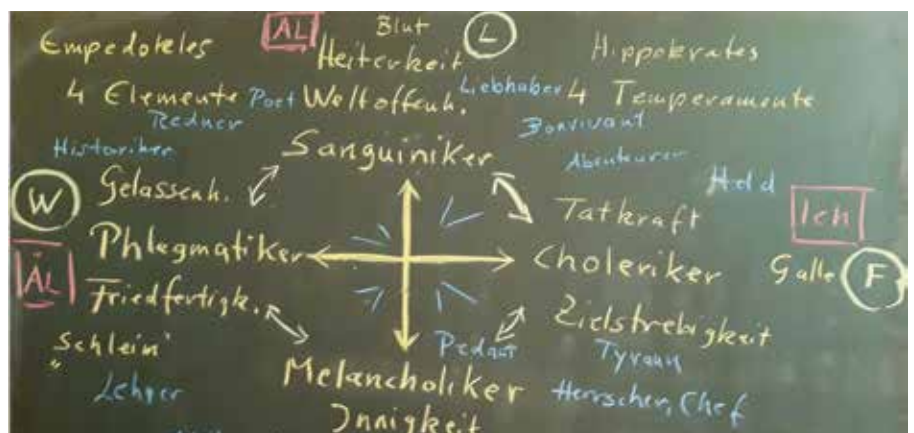 Empedokles ÄL Blut L Hippokrates
Heiterkeit
4 Elemente Poet Weltoffenh. Liebhaber 4 Temperamente
Redner Bonvivant
Historiker Sanguiniker Abenteurer
W Gelassenh. Held
Tatkraft Ich
Phlegmatiker Choleriker Galle F
ÄL Friedfertigk. Zielstrebigkeit
"Schleim" Pedant Tyrann
Lehrer Melancholiker Herrscher, Chef
Innigkeit